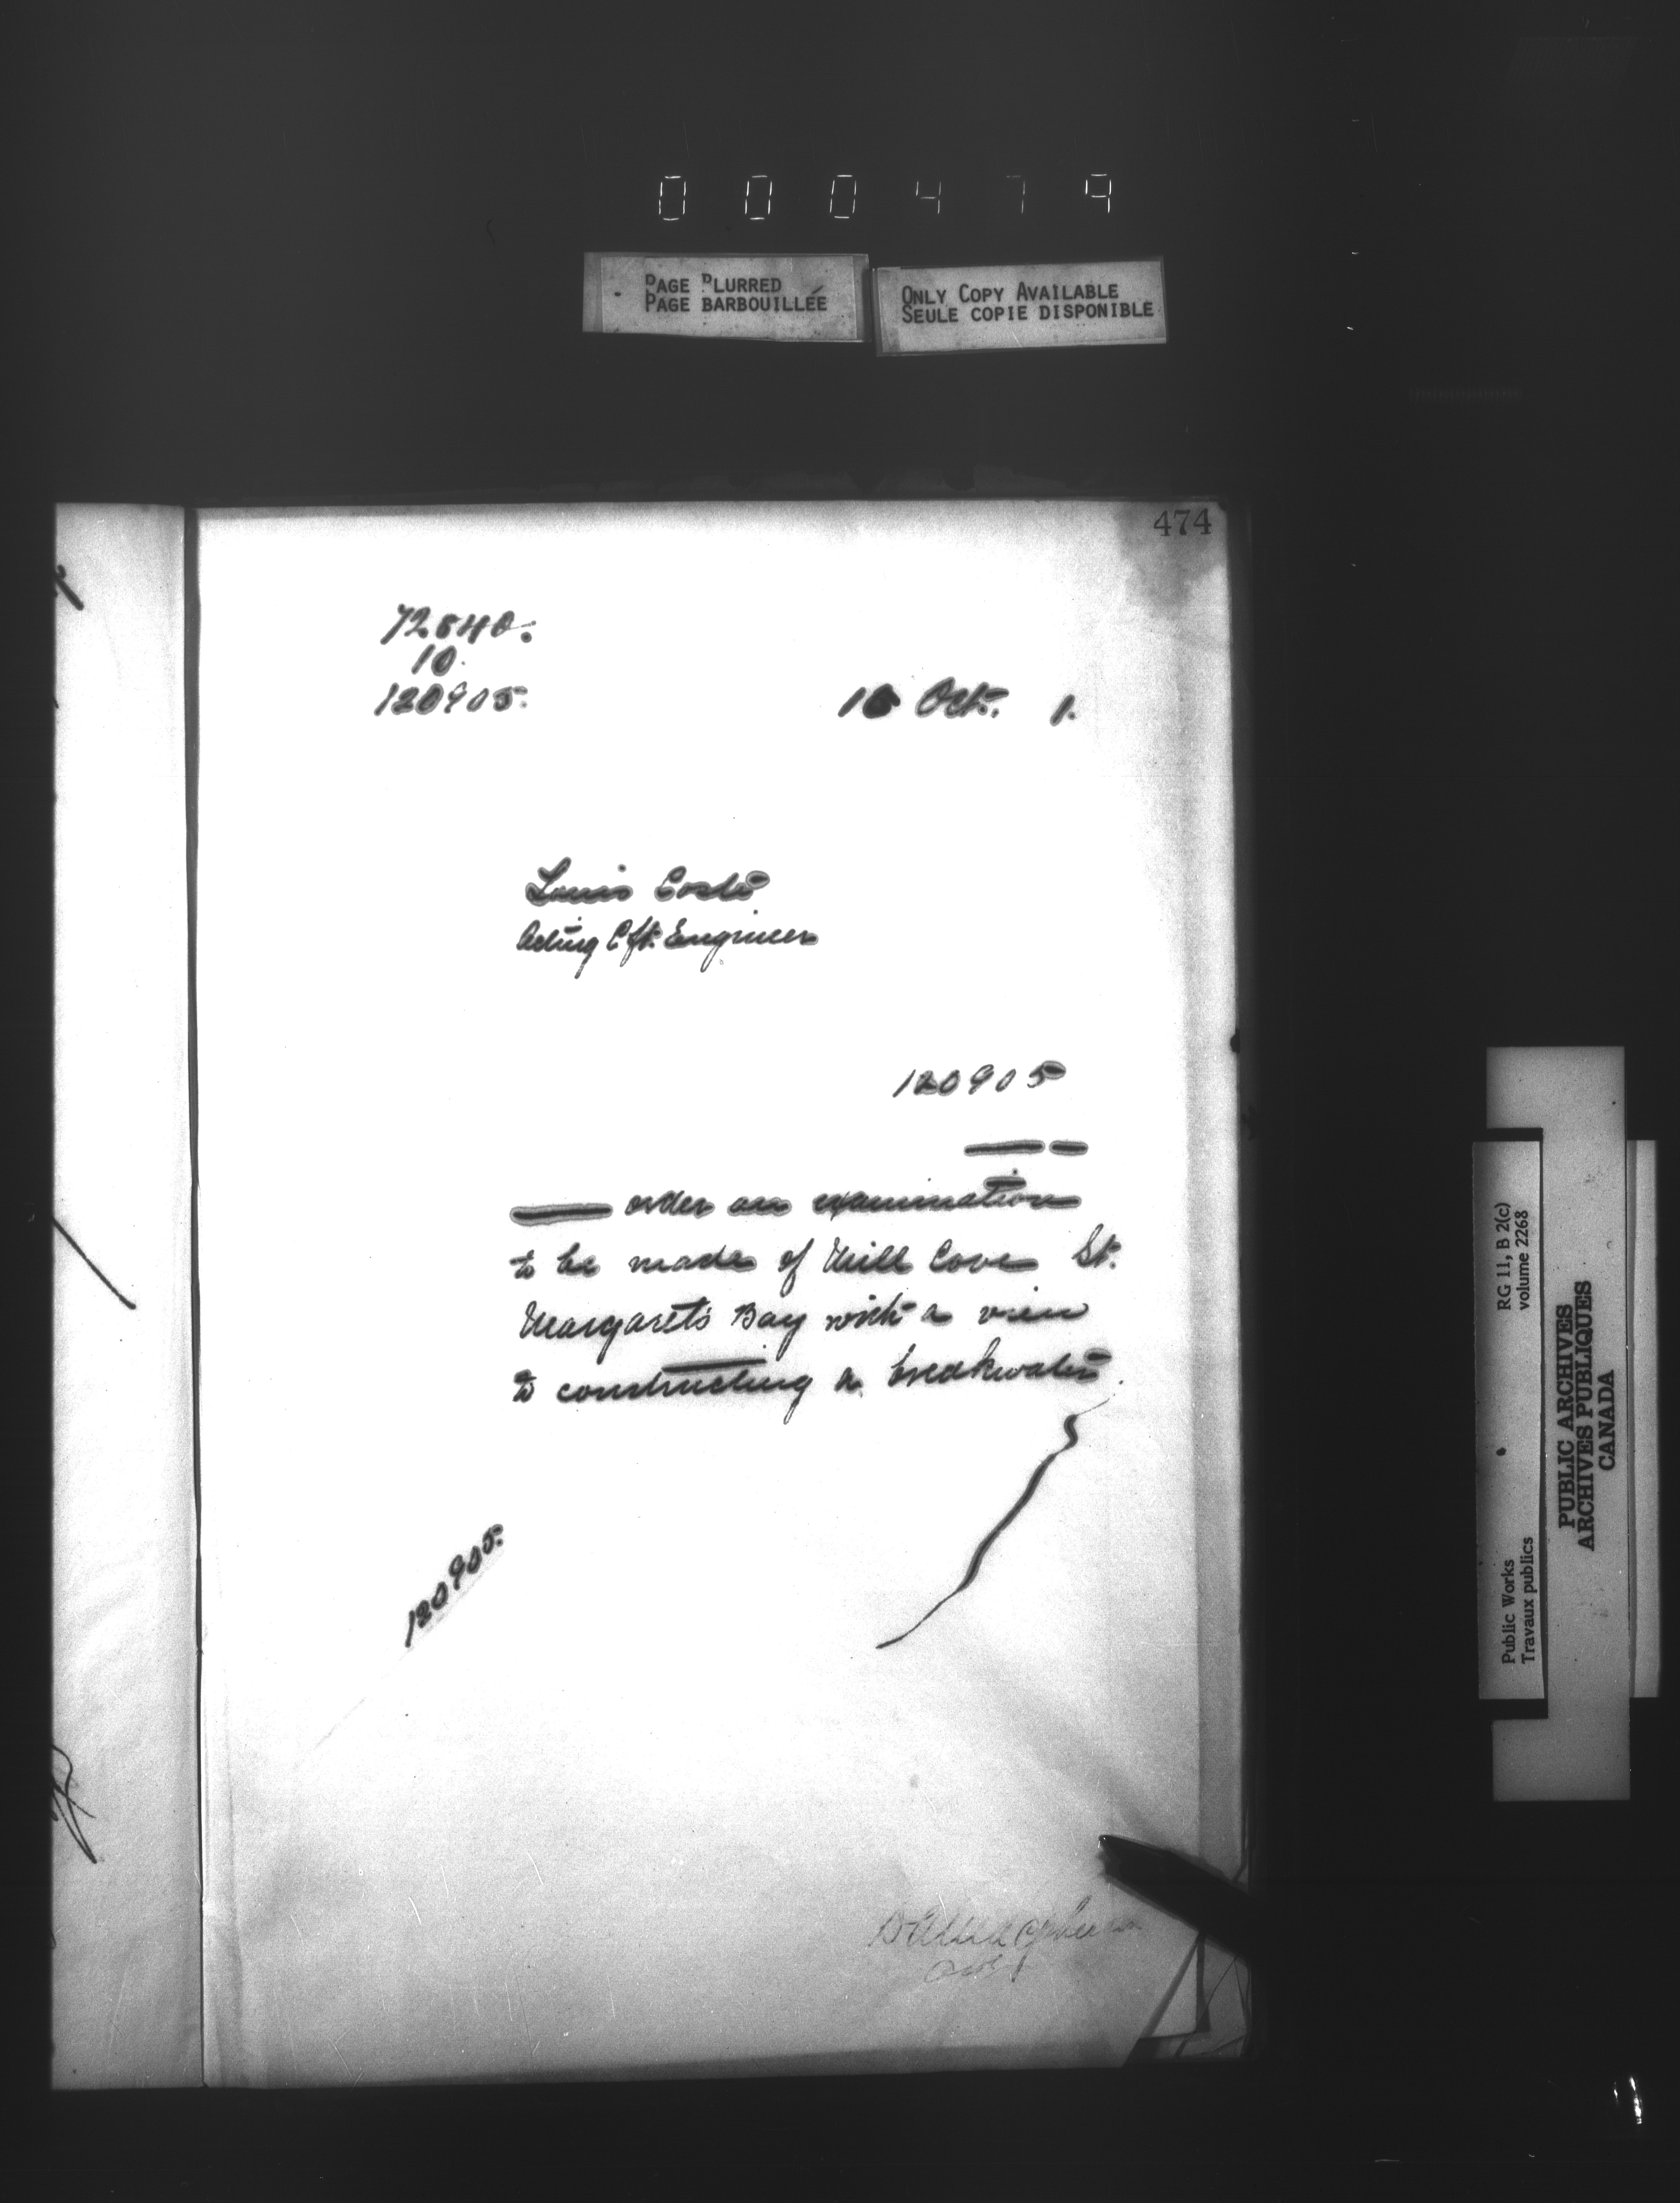 000479
PAGE BLURRED
PAGE BARBOUILLÉE
ONLY COPY AVAILABLE
SEULE COPIE DISPONIBLE
474
72540.
10.
120905.
16 Oct. 1.
Louis Coste
Acting Cf. Engineer
120905
order an examination
to be made of Mill Cove St.
Margaret's Bay with a view
to constructing a breakwater.
120905.
RG 11, B 2(c)
volume 2268
Public Works
Travaux publics
PUBLIC ARCHIVES
ARCHIVES PUBLIQUES
CANADA